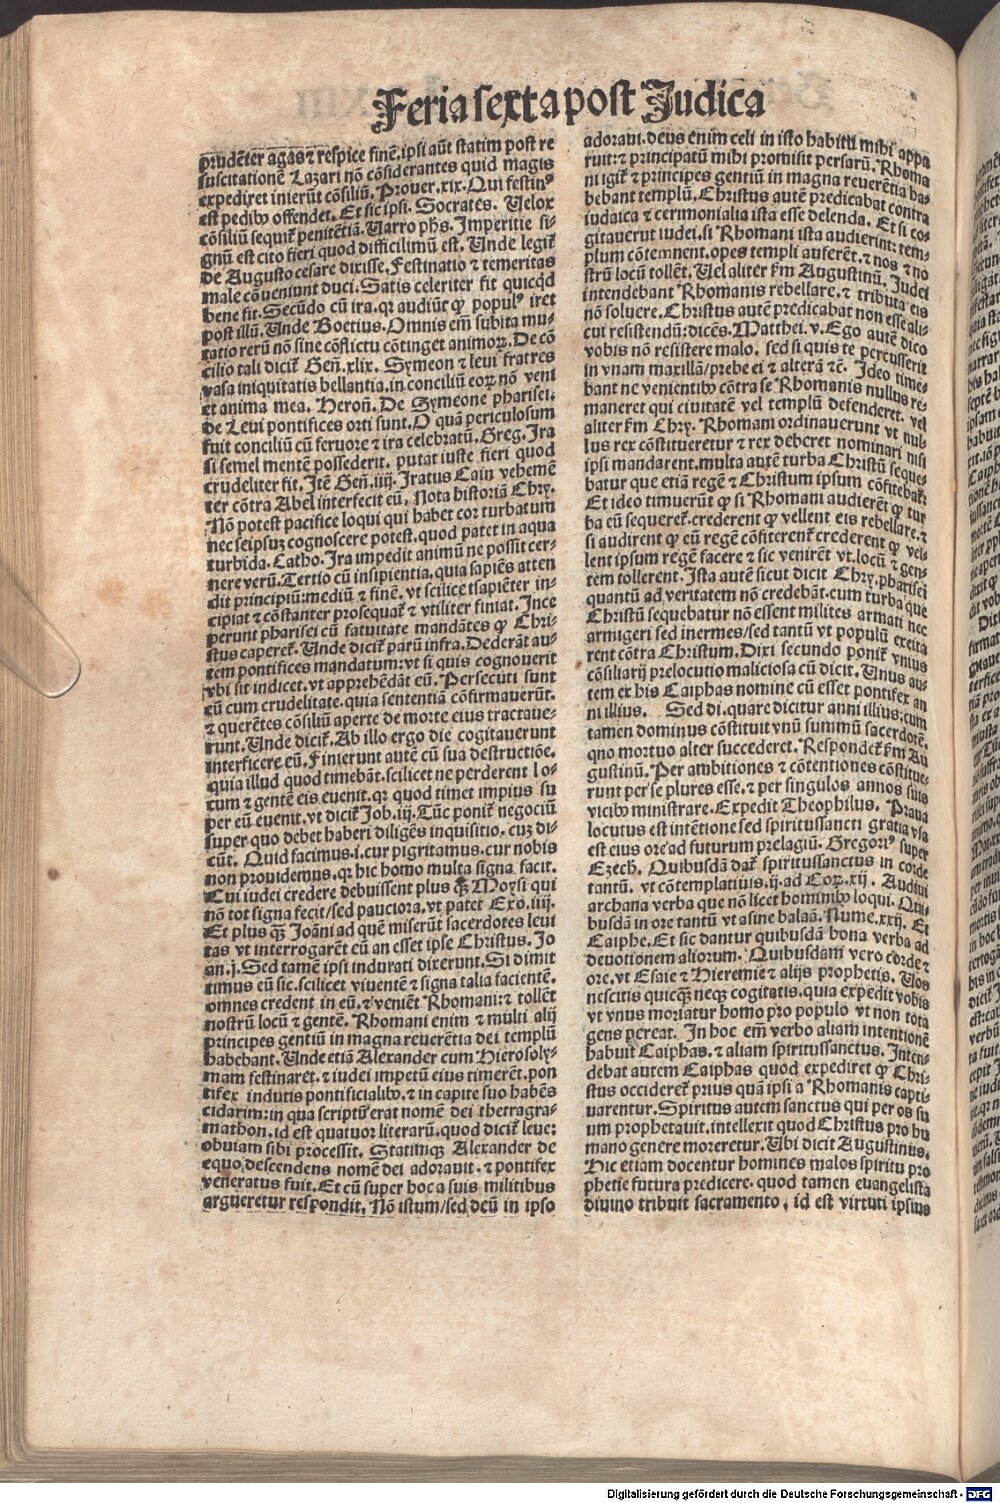 Feria sexta post Judica
prudēter agas ⁊ respice finē. ipsi aūt statim post re
suscitationē Lazari nō cōsiderantes quid magis
expediret inierūt cōsiliū. Prouer. xix. Qui festinꝰ
est pedibꝰ offendet. Et sic ipsi. Socrates. Uelox
cōsiliū sequit̃ penitētia. Uarro phs. Imperitie si-
gnū est cito fieri quod difficilimū est. Unde legit̃
de Augusto cesare dixisse. Festinatio ⁊ temeritas
male cōueniunt duci. Satis celeriter fit quicqd
bene fit. Secūdo cū ira. qꝛ audiūt ꝙ populꝰ iret
post illū. Unde Boetius. Omnis em̄ subita mu-
tatio rerū nō sine cōflictu cōtinget animoꝝ. De cō
cilio tali dicit̃ Geñ. xlix. Symeon ⁊ leui fratres
vasa iniquitatis bellantia. in conciliū eoꝝ nō veni
et anima mea. Heroñ. De Symeone pharisei.
de Leui pontifices orti sunt. O quā periculosum
fuit conciliū cū feruore ⁊ ira celebratū. Greg. Ira
si semel mentē possederit. putat iuste fieri quod
crudeliter fit. Itē Geñ. iiij. Iratus Cain vehemē
ter cōtra Abel interfecit eū. Nota historiā Chrẏ.
Nō potest pacifice loqui qui habet cor turbatum
nec seipsuꝫ cognoscere potest. quod patet in aqua
turbida. Catho. Ira impedit animū ne possit cer-
nere verū. Tertio cū insipientia. quia sapiēs atten
dit principiū: mediū ⁊ finē. vt scilicet sapiēter in-
cipiat ⁊ cōstanter prosequat̃ ⁊ vtiliter finiat. Ince
perunt pharisei cū fatuitate mandātes ꝙ Chri-
stus caperet̃. Unde dicit̃ parū infra. Dederāt au-
tem pontifices mandatum: vt si quis cognouerit
vbi sit indicet. vt apprehēdāt eū. Persecuti sunt
eū cum crudelitate. quia sententiā cōfirmauerūt.
⁊ querētes cōsiliū aperte de morte eius tractaue-
runt. Unde dicit̃. Ab illo ergo die cogitauerunt
interficere eū. Finierunt autē cū sua destructiōe.
quia illud quod timebāt. scilicet ne perderent lo-
cum ⁊ gentē eis euenit. qꝛ quod timet impius su
per eū euenit. vt dicit̃ Job. iij. Tūc ponit̃ negociū
super quo debet haberi diligēs inquisitio. cuꝫ di-
cūt. Quid facimus. i. cur pigritamus. cur nobis
non prouidemus. qꝛ hic homo multa signa facit.
Cui iudei credere debuissent plus ꝙ̃ Moysi qui
nō tot signa fecit/sed pauciora. vt patet Exo. iiij.
Et plus qꝫ Joāni ad quē miserūt sacerdotes leui
tas vt interrogarēt eū an esset ipse Christus. Jo
an. j. Sed tamē ipsi indurati dixerunt. Si dimit
timus eū sic. scilicet viuentē ⁊ signa talia facientē.
omnes credent in eū. ⁊ veniēt Rhomani: ⁊ tollēt
nostrū locū ⁊ gentē. Rhomani enim ⁊ multi alij
principes gentiū in magna reuerētia dei templū
habebant. Unde etiā Alexander cum Hierosoly-
mam festinaret. ⁊ iudei impetū eius timerēt. pon
tifex indutis pontificialibꝰ. ⁊ in capite suo habēs
cidarim: in qua scriptū erat nomē dei thetragra-
mathon. id est quatuor literarū. quod dicit̃ leue:
obuiam sibi processit. Statimqꝫ Alexander de
equo descendens nomē dei adorauit. ⁊ pontifex
veneratus fuit. Et cū super hoc a suis militibus
argueretur respondit. Nō istum/sed deū in ipso
adoraui. deus enim celi in isto habitu mihi appa
ruit: ⁊ principatū mihi promisit persarū. Rhoma
ni igit̃ ⁊ principes gentiū in magna reuerētia ha-
bebant templū. Christus autē predicabat contra
iudaica ⁊ cerimonialia ista esse delenda. Et si co-
gitauerut iudei. si Rhomani ista audierint: tem-
plum cōtemnent. opes templi auferēt. ⁊ nos ⁊ no
strū locū tollēt. Uel aliter ẜm Augustinū. Judei
intendebant Rhomanis rebellare. ⁊ tributa eis
nō soluere. Christus autē predicabat non esse ali-
cui resistendū: dicēs. Matthei. v. Ego autē dico
vobis nō resistere malo. sed si quis te percusserit
in vnam maxillā/prebe ei ⁊ alterā ⁊c̄. Ideo time-
bant ne venientibꝰ cōtra se Rhomanis nullus re-
maneret qui ciuitatē vel templū defenderet. vel
aliter ẜm Chrẏ. Rhomani ordinauerunt vt nul-
lus rex cōstitueretur ⁊ rex deberet nominari nisi
ipsi mandarent. multa autē turba Christū seque-
batur que etiā regē ⁊ Christum ipsum cōfitebat̃:
Et ideo timuerūt ꝙ si Rhomani audierēt ꝙ tur
ba eū sequeret̃. crederent ꝙ vellent eis rebellare. ⁊
si audirent ꝙ eū regē cōfiterent̃ crederent ꝙ vel-
lent ipsum regē facere ⁊ sic venirēt vt locū ⁊ gen-
tem tollerent. Ista autē sicut dicit Chrẏ. pharisei
quantū ad veritatem nō credebāt. cum turba que
Christū sequebatur nō essent milites armati nec
armigeri sed inermes/sed tantū vt populū excita
rent cōtra Christum. Dixi secundo ponit̃ vnius
cōsiliarij prelocutio maliciosa cū dicit. Unus au-
tem ex his Caiphas nomine cū esset pontifex an
ni illius. Sed di. quare dicitur anni illius: cum
tamen dominus cōstituit vnū summū sacerdotē.
quo mortuo alter succederet. Respondet̃ ẜm Au
gustinū. Per ambitiones ⁊ cōtentiones cōstitue-
runt per se plures esse. ⁊ per singulos annos suis
vicibꝰ ministrare. Expedit Theophilus. Praua
locutus est intētione sed spiritussancti gratia vsa
est eius ore ad futurum prelagiū. Gregoriꝰ super
Ezech. Quibusdā dat̃ spiritussanctus in corde
tantū. vt cōtemplatiuis. ij. ad Coꝝ. xij. Audiui
archana verba que nō licet hominibꝰ loqui. Qui-
busdā in ore tantū vt asine balaā. Nume. xxij. Et
Caiphe. Et sic dantur quibusdā bona verba ad
deuotionem aliorum. Quibusdam vero corde ⁊
ore. vt Esaie ⁊ Hieremie ⁊ alijs prophetis. Uos
nescitis quicqꝫ neqꝫ cogitatis. quia expedit vobis
vt vnus moriatur homo pro populo vt non tota
gens pereat. In hoc em̄ verbo aliam intentionē
habuit Caiphas. ⁊ aliam spiritussanctus. Inten-
debat autem Caiphas quod expediret ꝙ Chri-
stus occideret̃ prius quā ipsi a Rhomanis capti-
uarentur. Spiritus autem sanctus qui per os su
um prophetauit. intellexit quod Christus pro hu
mano genere moreretur. Ubi dicit Augustinus.
Hic etiam docentur homines malos spiritu pro
phetie futura predicere. quod tamen euangelista
diuino tribuit sacramento. id est virtuti ipsius
Digitalisierung gefördert durch die Deutsche Forschungsgemeinschaft - DFG